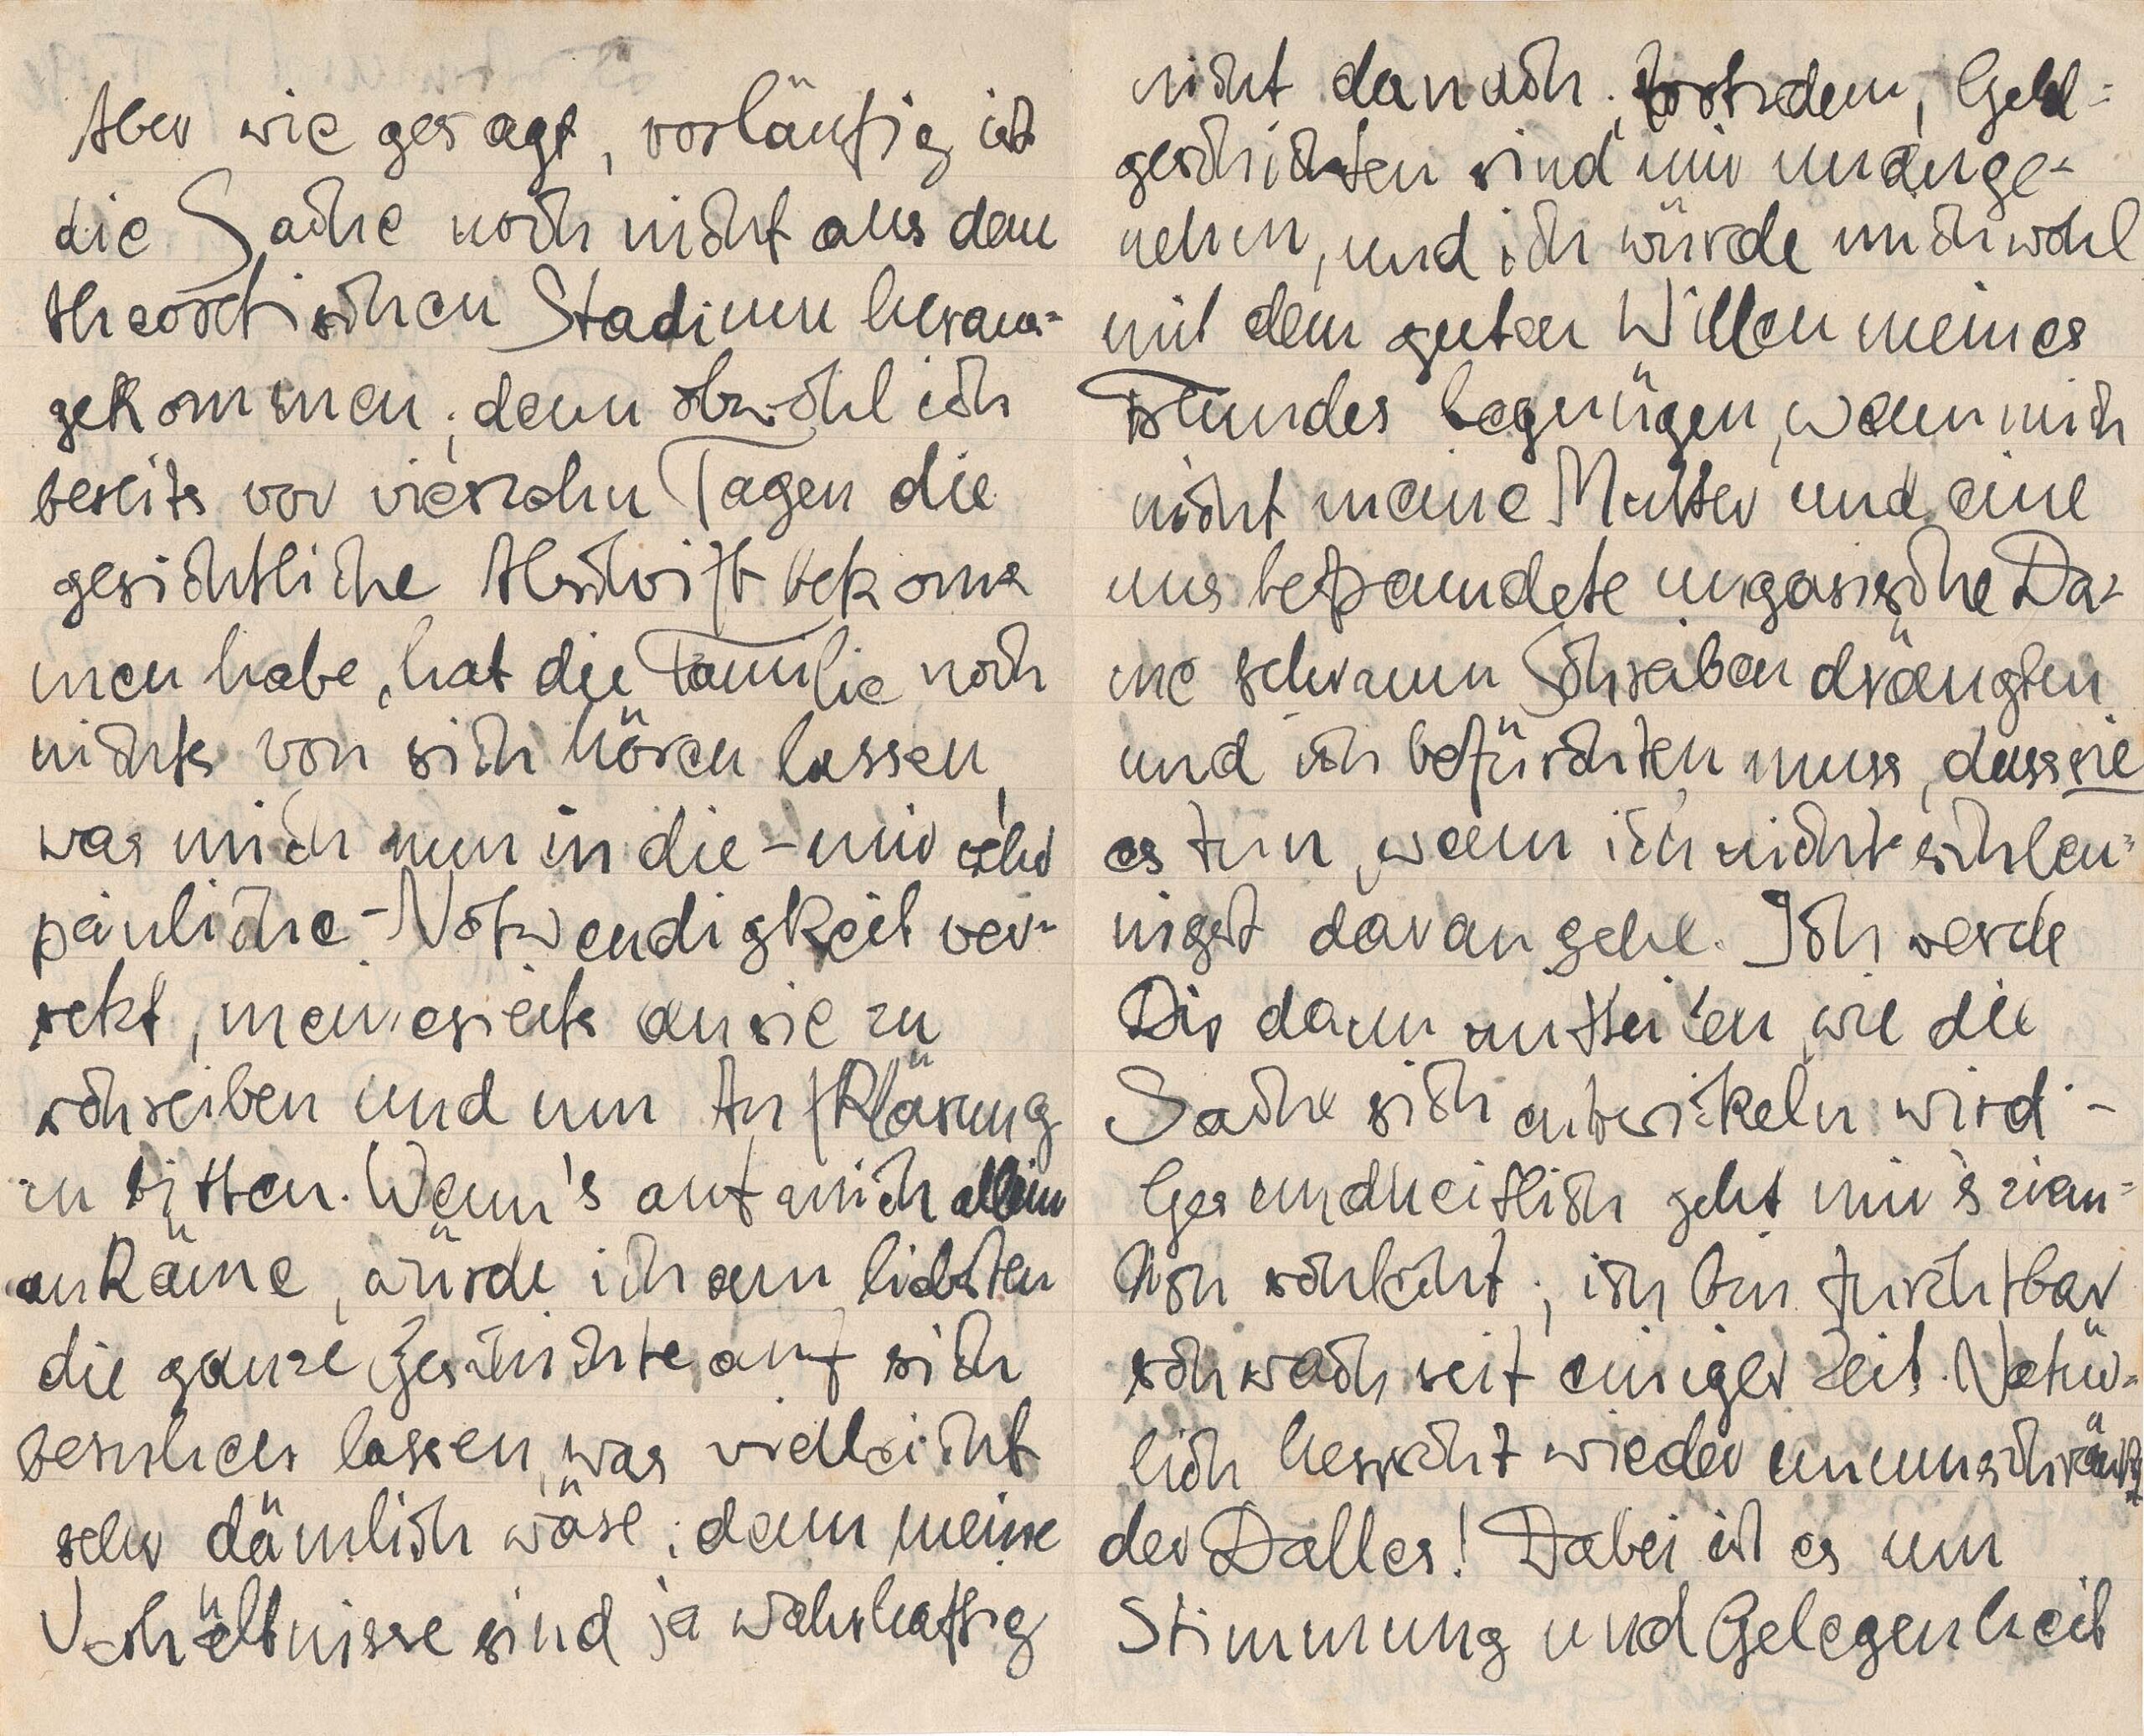 Aber wie gesagt, vorläufig ist
die Sache noch nicht aus dem
theoretischen Stadium heraus-
gekommen; denn obwohl ich
bereits vor vierzehn Tagen die
gerichtliche Abschrift bekom-
men habe, hat die Familie noch
nichts von sich hören lassen,
was mich nun in die - mir sehr
peinliche - Notwendigkeit ver-
setzt, meinerseits an sie zu
schreiben und um Aufklärung
zu bitten. Wenn's auf mich allein
ankäme, würde ich am liebsten
die ganze Geschichte auf sich
beruhen lassen, was vielleicht
sehr dämlich wäre; denn meine
Verhältnisse sind ja wahrhaftig
nicht danach. Trotzdem, Geld-
geschichten sind mir unange-
nehm, und ich würde mich wohl
mit dem guten Willen meines
Freundes begnügen, wenn mich
nicht meine Mutter und eine
uns befreundete ungarische Da-
me sehr zum Schreiben drängten
und ich befürchten muss, dass sie
es tun, wenn ich nicht schleu-
nigst daran gehe. Ich werde
Dir dann mitteilen, wie die
Sache sich entwickeln wird. -
Gesundheitlich geht mir's ziem-
lich schlecht; ich bin furchtbar
schwach seit einiger Zeit. Natür-
lich herrscht wieder unumschränkt
der Dalles! Dabei ist es um
Stimmung und Gelegenheit